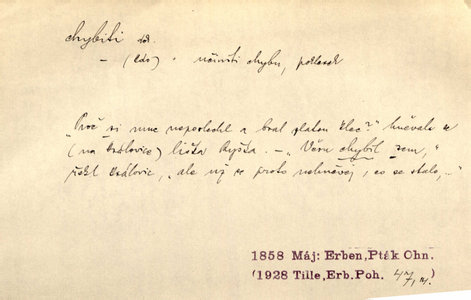 chybiti dok.
– (kdo) • učiniti chybu, poklesek
„Proč si mne neposlechl a bral zlatou klec?“ hněvala se
(na králevice) liška Ryška. – „Věru chybil jsem,“
řekl králevic, „ale už se proto nehněvej, co se stalo, ..“
1858 Máj: Erben, Pták Ohn.
(1928 Tille, Erb. Poh. 47, )